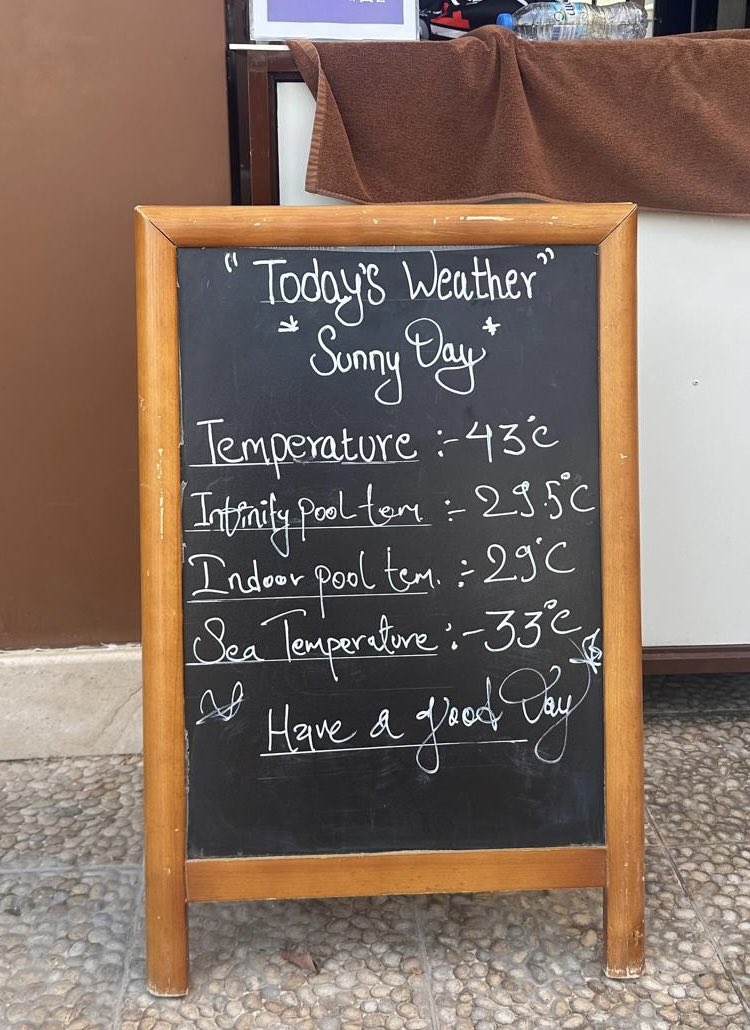 "Today's Weather"
* Sunny Day *
Temperature :- 43°C
Infinity pool tem. :- 29.5°C
Indoor pool tem. :- 29°C
Sea Temperature :- 33°C
Have a good Day